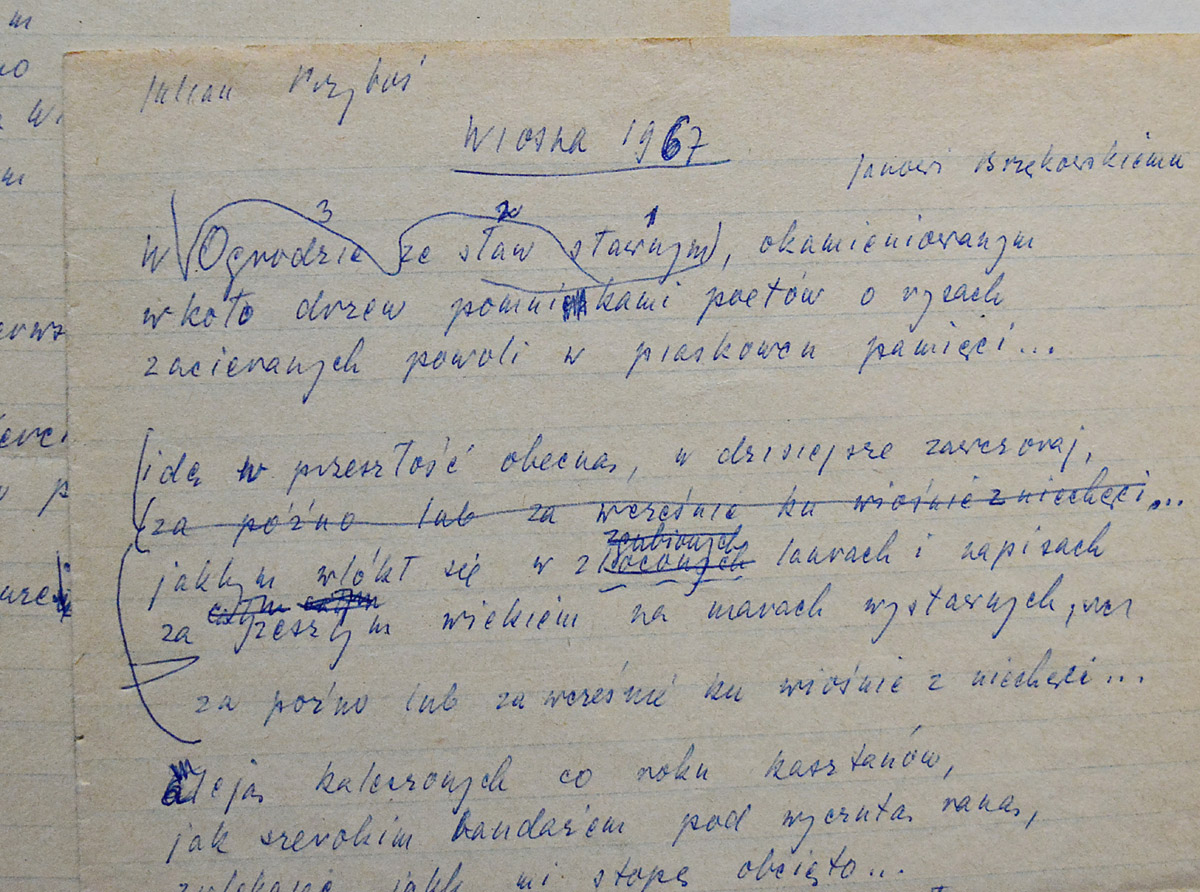 Julian Przyboś
Wiosna 1967
Janowi Brzękowskiemu
3 2 1
W Ogrodzie ze sław sławnym, okamieniowanym
wkoło drzew pomnikami poetów o rysach
zacieranych powoli w piaskowcu pamięci...
idę w przeszłość obecną, w dzisiejsze zawczoraj,
za późno lub za wcześnie ku wiośnie z niechęci...
zgubionych
jakbym wlókł się w złoconych laurach i napisach
całym
za zeszłym wiekiem na marach wystawnych,
za późno lub za wcześnie ku wiośnie z niechęci...
aleją kaleczonych co roku kasztanów,
jak szerokim bandażem pod wyczutą raną,
jakby mi stopę obcięto...